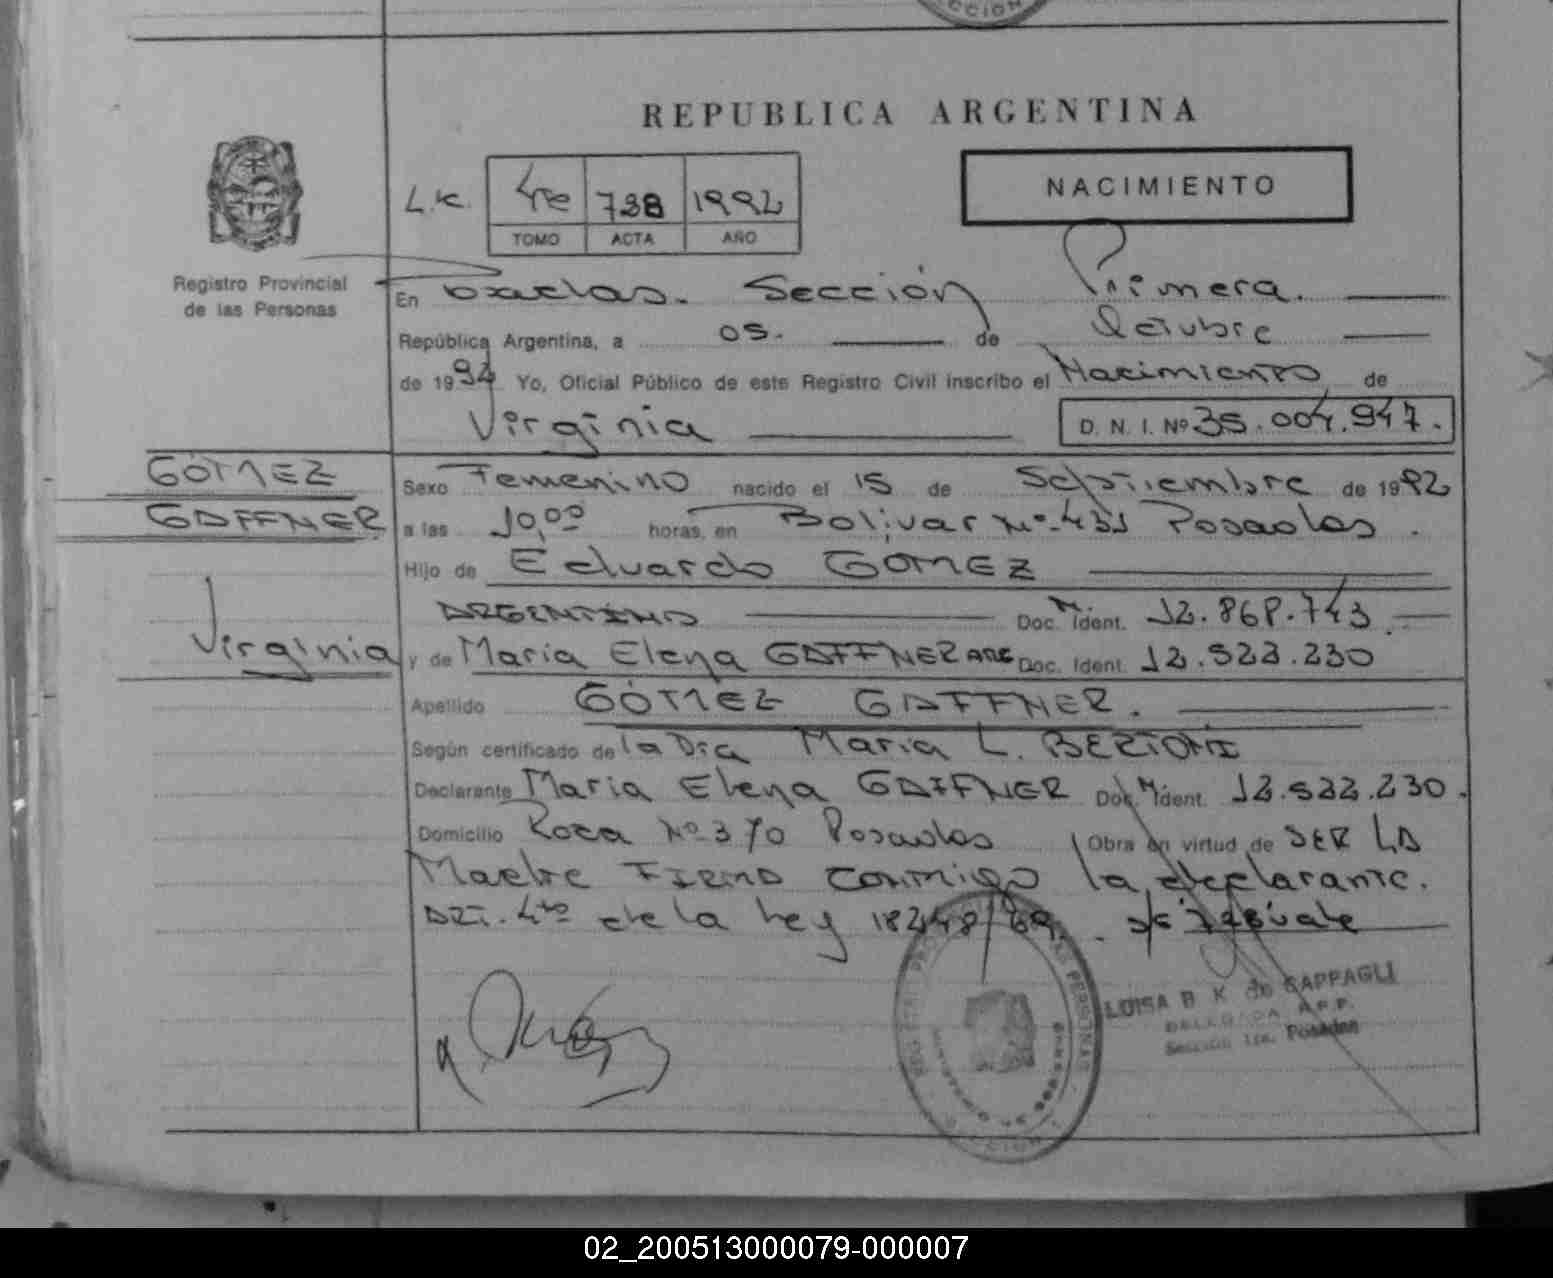 REPUBLICA ARGENTINA
L.C. 4to 738 1992
TOMO ACTA AÑO
NACIMIENTO
Registro Provincial
de las Personas
En Posadas. Sección Primera.
República Argentina, a 05. de Octubre
de 1992 Yo, Oficial Público de este Registro Civil inscribo el Nacimiento de
Virginia
D. N. I. Nº 35.004.947.
GÓMEZ
GAFFNER
Virginia
Sexo Femenino nacido el 15 de Septiembre de 1992
a las 10,00 horas, en Bolivar Nº 431 Posadas.
Hijo de Eduardo GOMEZ
ARGENTINO Doc. M. Ident. 12.868.743.
y de Maria Elena GAFFNER ARG Doc. Ident. 12.522.230
Apellido GÓMEZ GAFFNER.
Según certificado de la Dra Maria L. BERTONI
Declarante Maria Elena GAFFNER Doc. M. Ident. 12.522.230.
Domicilio Roca Nº 370 Posadas Obra en virtud de SER LA
Madre FIRMA conmigo la declarante.
ART. 4to de la ley 18248/69.
LUISA B K de CAPPAGLI
DELEGADA R.P.P.
Sección 1ra. Posadas
02_200513000079-000007